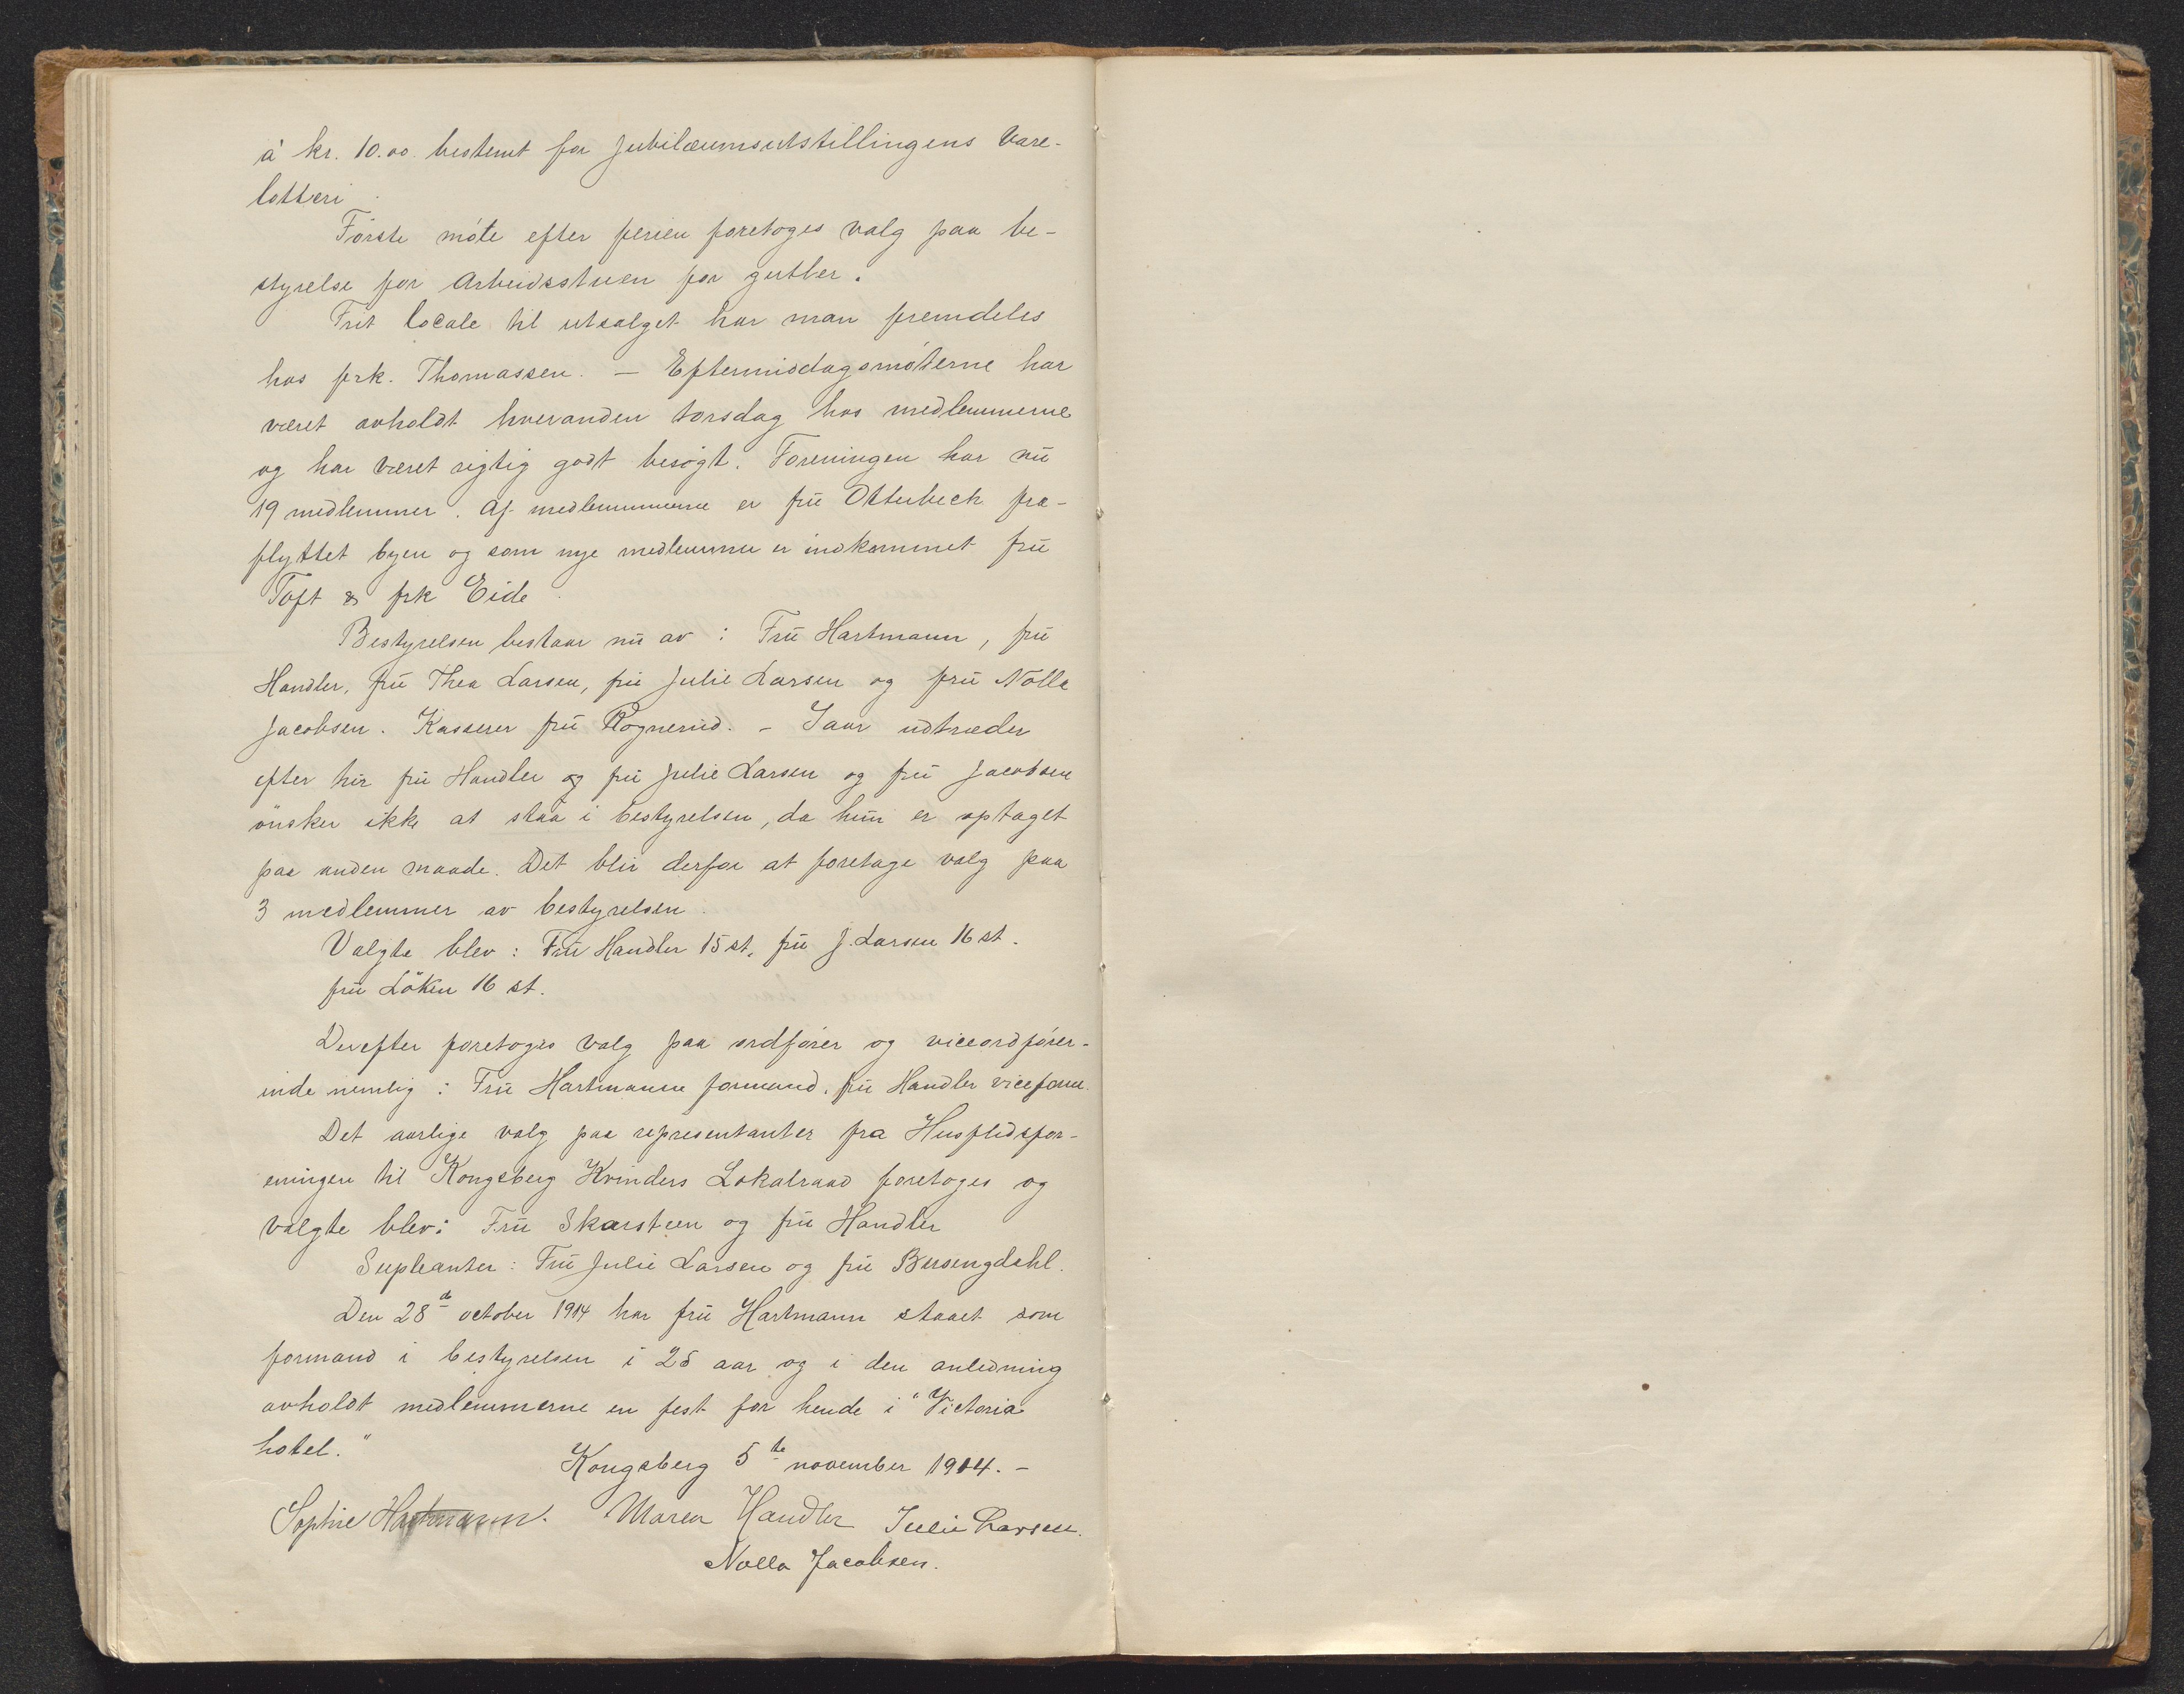 à kr. 10.00. bestemt for Jubilæumsutstillingens Vare-
lotteri.
Første møte efter ferien foretoges valg paa be-
styrelse for Arbeidsstuen for gutter.
Frit locale til utsalget har man fremdeles
hos frk. Thomassen. – Eftermiddagsmøterne har
været avholdt hveranden torsdag hos medlemmerne
og har været rigtig godt besøgt. Foreningen har nu
19 medlemmer. Af medlemmerne er fru Otterbech fra-
flyttet byen og som nye medlemmer er indkommet fru
Toft & frk Eide.
Bestyrelsen bestaar nu av: Fru Hartmann, fru
Handler, fru Thea Larsen, fru Julie Larsen og fru Nolla
Jacobsen. Kasserer fru Rognerud. – Iaar udtræder
efter tur fru Handler og fru Julie Larsen og fru Jacobsen
ønsker ikke at staa i bestyrelsen, da hun er optaget
paa anden maade. Det blir derfor at foretage valg paa
3 medlemmer av bestyrelsen.
Valgte blev: Fru Handler 15 st, fru J. Larsen 16 st.
fru Löken 16 st.
Derefter foretoges valg paa ordfører og viceordfører-
inde nemlig: Fru Hartmann formand, fru Handler viceform.
Det aarlige valg paa representanter fra Husflidsfor-
eningen til Kongsberg Kvinders Lokalraad foretoges og
valgte blev: Fru Skarsteen og fru Handler
Supleanter: Fru Julie Larsen og fru Busengdahl.
Den 28de october 1914 har fru Hartmann staaet som
formand i bestyrelsen i 25 aar og i den anledning
avholdt medlemmerne en fest for hende i "Victoria
hotel."
Kongsberg 5te november 1914. –
Sophie Hartmann. Maren Handler Julie Larsen.
Nolla Jacobsen.